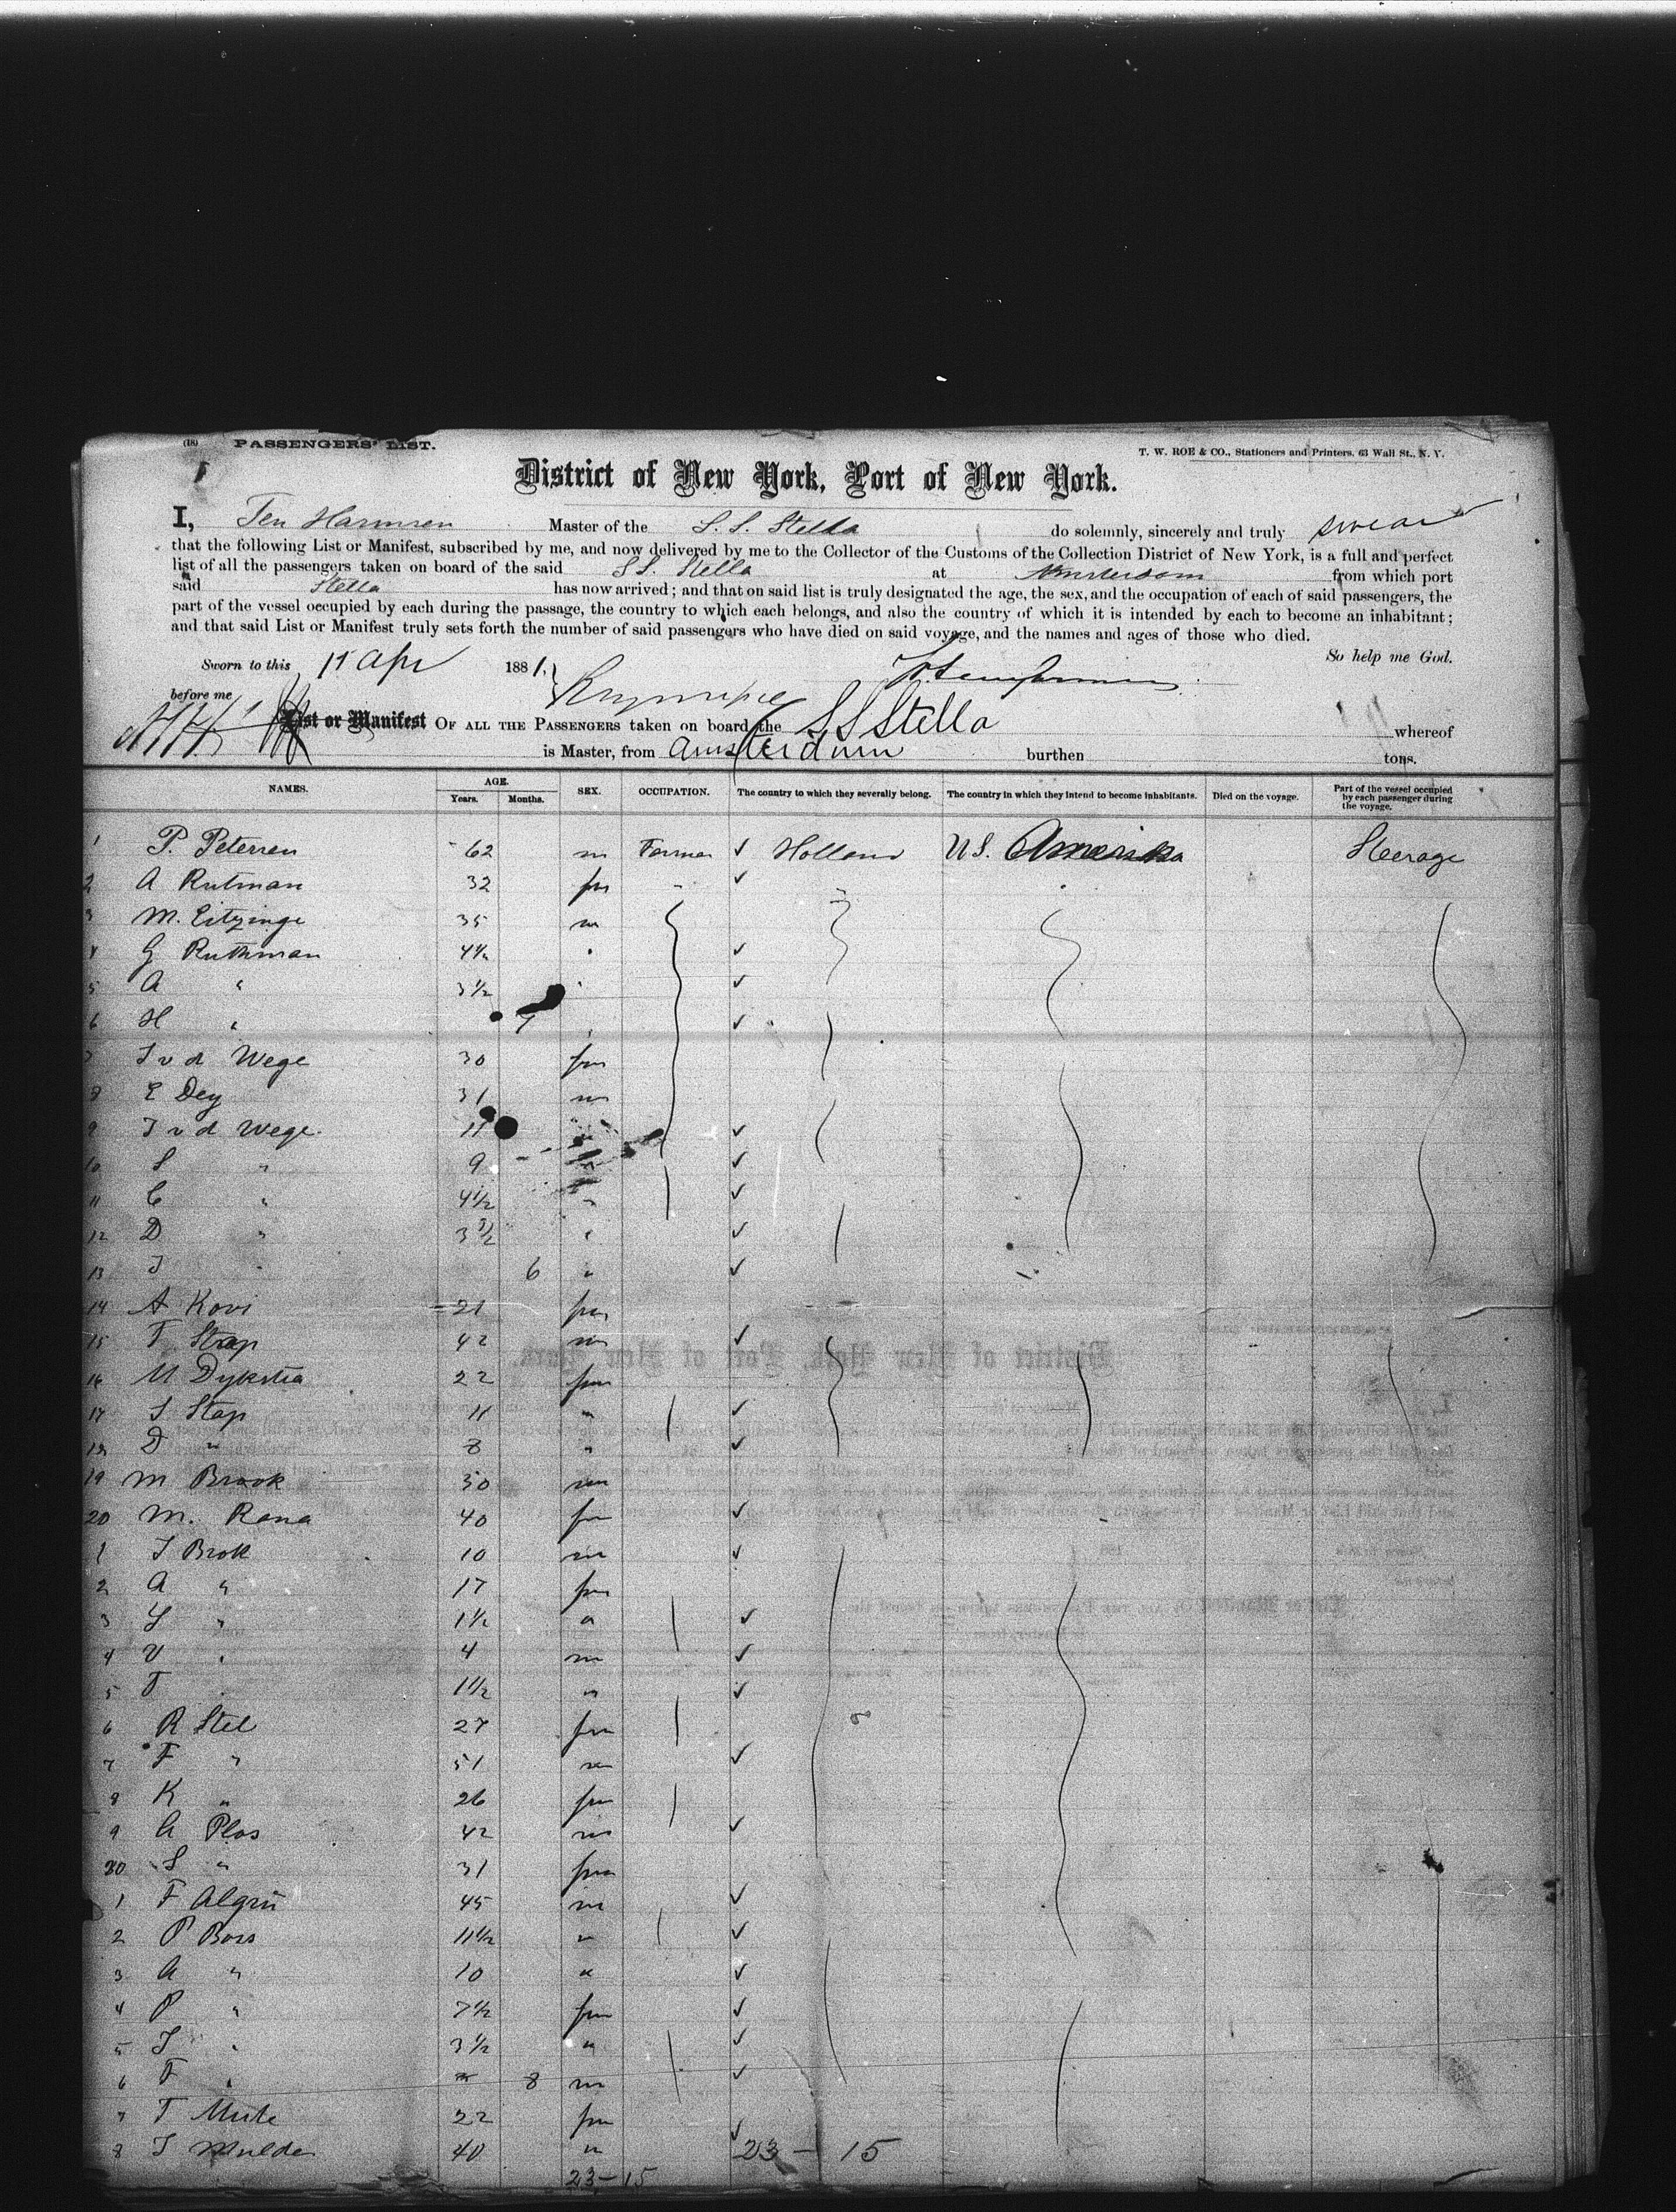 (18) PASSENGERS' LIST.
T. W. ROE & CO., Stationers and Printers, 63 Wall St., N. Y.
District of New York, Port of New York.
I, Ten Harmsen Master of the S. S. Stella do solemnly, sincerely and truly swear
that the following List or Manifest, subscribed by me, and now delivered by me to the Collector of the Customs of the Collection District of New York, is a full and perfect
list of all the passengers taken on board of the said SS. Stella at Amsterdam from which port
said Stella has now arrived; and that on said list is truly designated the age, the sex, and the occupation of each of said passengers, the
part of the vessel occupied by each during the passage, the country to which each belongs, and also the country of which it is intended by each to become an inhabitant;
and that said List or Manifest truly sets forth the number of said passengers who have died on said voyage, and the names and ages of those who died.
So help me God.
Sworn to this 15 Apr 1881.
before me
List or Manifest OF ALL THE PASSENGERS taken on board the SS Stella whereof
is Master, from Amsterdam burthen tons.
NAMES. AGE. Years. Months. SEX. OCCUPATION. The country to which they severally belong. The country in which they intend to become inhabitants. Died on the voyage. Part of the vessel occupied by each passenger during the voyage.
1 P. Petersen 62 m Farmer ✓ Holland US. Amerika Steerage
2 A Rutman 32 fm " ✓
3 M. Eitzinge 35 m
4 G Ruthman 4½ " ✓
5 A " 3½ " ✓
6 H " 7 " ✓
7 J v d Wege 30 fm
8 E Dey 31 m
9 J v d Wege 11 " ✓
10 S " 9 " ✓
11 C " 4½ " ✓
12 D " 3½ " ✓
13 J " 6 " ✓
14 A Kovi 21 fm
15 T Stap 42 m ✓
16 U Dykstra 22 fm
17 S Stap 11 " ✓
18 D " 8 " ✓
19 M Brook 50 m
20 M. Rana 40 fm ✓
1 J Brok 10 m ✓
2 A " 17 fm
3 Y " 1½ " ✓
4 V " 4 m ✓
5 T " 1½ " ✓
6 R Stel 27 fm
7 F " 51 m ✓
8 K " 26 fm
9 A Plas 42 m ✓
30 S " 31 fm
1 F Algrii 45 m ✓
2 P Bors 11½ " ✓
3 A " 10 " ✓
4 P " 7½ fm ✓
5 J " 3½ " ✓
6 F " 8 m ✓
7 T Mule 22 fm
8 J Mulder 40 " ✓ 23 - 15
23 - 15